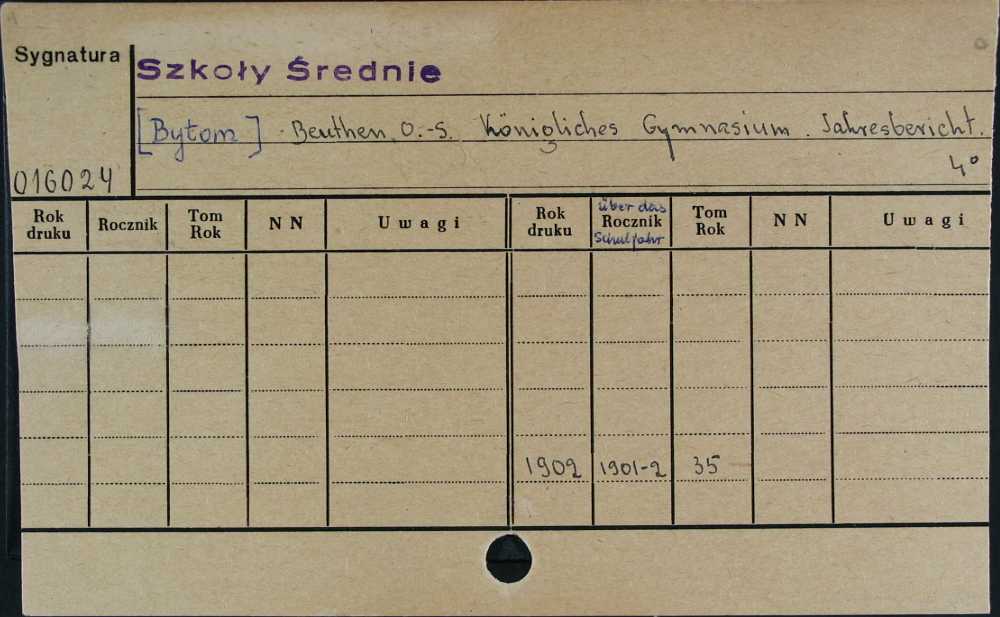 Sygnatura
Szkoły Średnie
[Bytom] . Beuthen, O.-S. Königliches Gymnasium. Jahresbericht.
4°
016024
Rok druku Rocznik Tom Rok NN Uwagi Rok druku über das Rocznik Schuljahr Tom Rok NN Uwagi
1902 1901-2 35